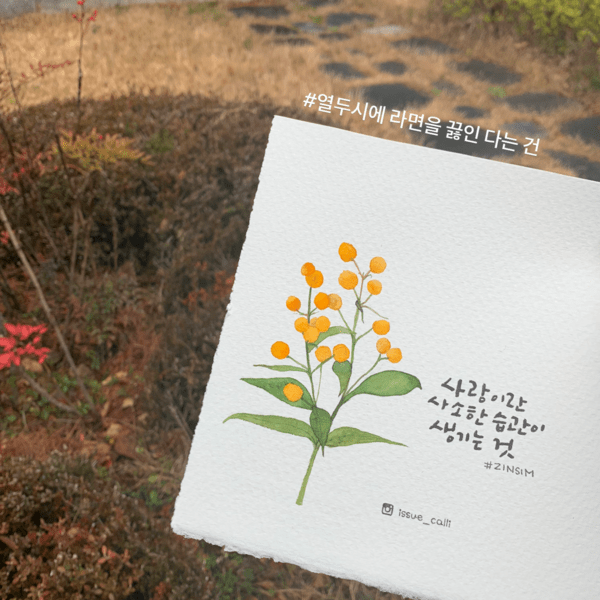 #열두시에 라면을 끓인 다는 건
사랑이란
사소한 습관이
생기는 것
#ZINSIM
issue_calli